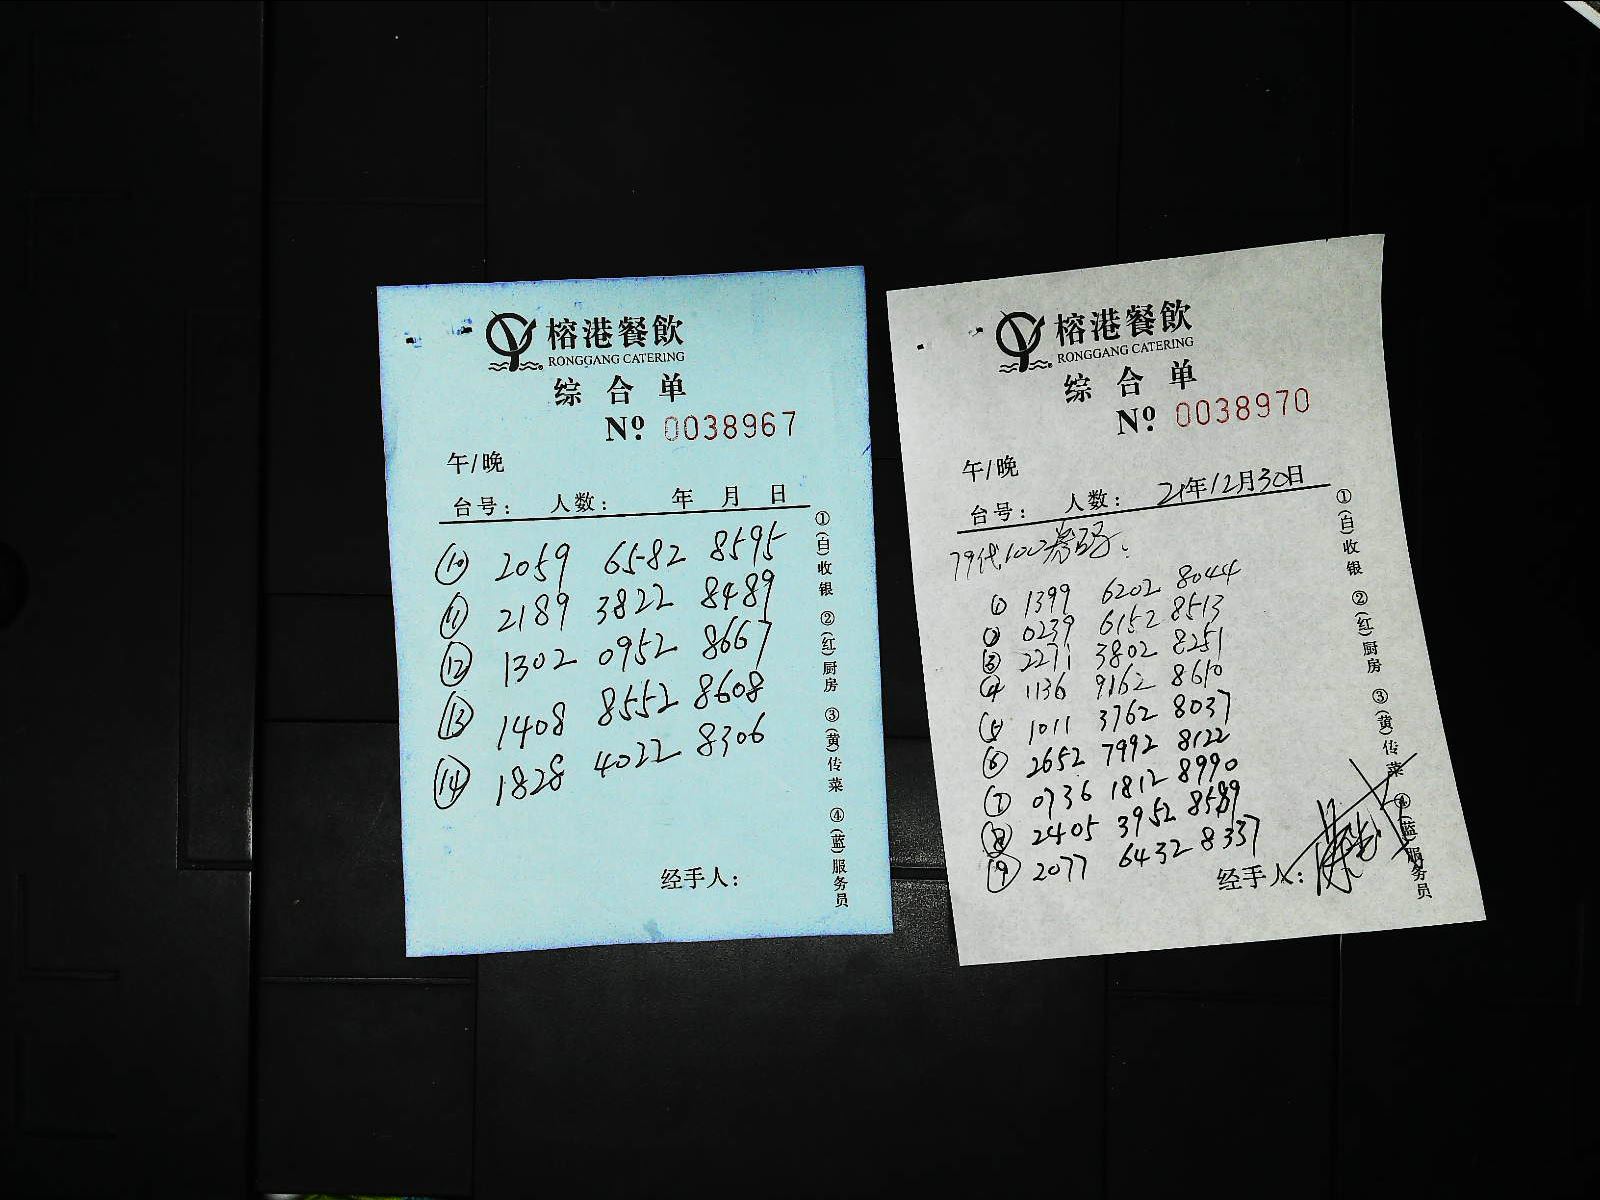 榕港餐飲
RONGGANG CATERING
综合单
Nº 0038967
午/晚
台号： 人数： 年 月 日
⑩ 2059 6582 8595
⑪ 2189 3822 8489
⑫ 1302 0952 8667
⑬ 1408 8552 8608
⑭ 1828 4022 8306
经手人：
①(白)收银 ②(红)厨房 ③(黄)传菜 ④(蓝)服务员
榕港餐飲
RONGGANG CATERING
综合单
Nº 0038970
午/晚
台号： 人数： 21年12月30日
79代100券码：
① 1399 6202 8044
② 0239 6152 8513
③ 2271 3802 8251
④ 1136 9162 8610
⑤ 1011 3762 8037
⑥ 2652 7992 8122
⑦ 0736 1812 8990
⑧ 2405 3952 8589
⑨ 2077 6432 8337
经手人：
①(白)收银 ②(红)厨房 ③(黄)传菜 ④(蓝)服务员